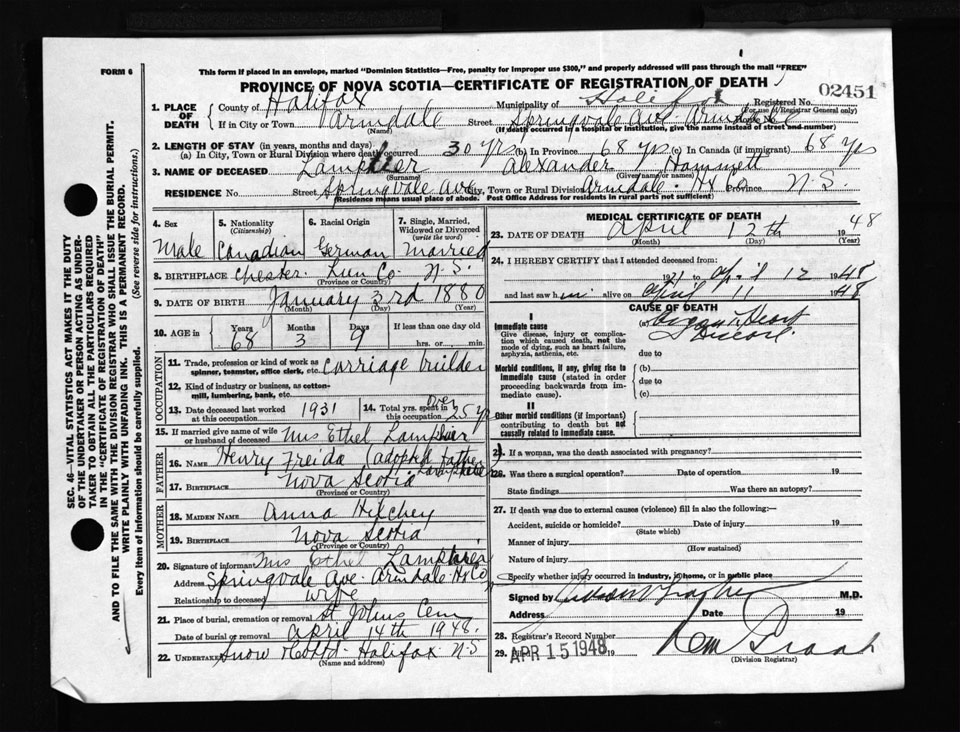 FORM 6
This form if placed in an envelope, marked "Dominion Statistics—Free, penalty for improper use $300," and properly addressed will pass through the mail "FREE"
PROVINCE OF NOVA SCOTIA—CERTIFICATE OF REGISTRATION OF DEATH
02451
1. PLACE OF DEATH County of Halifax Municipality of Halifax Registered No. (For use of Registrar General only)
If in City or Town Armdale (Name) Street Springvale Ave Armdale House No.
(If death occurred in a hospital or institution, give the name instead of street and number)
2. LENGTH OF STAY (in years, months and days)
(a) In City, Town or Rural Division where death occurred 30 yrs (b) In Province 68 yrs (c) In Canada (if immigrant) 68 yrs
3. NAME OF DECEASED Lamphier (Surname) Alexander Hammett (Given name or names)
RESIDENCE No. Street Springvale Ave City, Town or Rural Division Armdale Hx Co Province N.S.
(Residence means usual place of abode. Post Office Address for residents in rural parts not sufficient)
4. Sex Male
5. Nationality (Citizenship) Canadian
6. Racial Origin German
7. Single, Married, Widowed or Divorced (write the word) Married
8. BIRTHPLACE Chester Lun Co. N.S.
(Province or Country)
9. DATE OF BIRTH January 3rd 1880
(Month) (Day) (Year)
10. AGE in Years 68 Months 3 Days 9 If less than one day old hrs. or min.
OCCUPATION
11. Trade, profession or kind of work as spinner, teamster, office clerk, etc. Carriage builder
12. Kind of industry or business, as cotton-mill, lumbering, bank, etc.
13. Date deceased last worked at this occupation 1931
14. Total yrs. spent in this occupation Over 25 yr
15. If married give name of wife or husband of deceased Mrs Ethel Lamphier
FATHER
16. NAME Henry Freida (adopted father Lamphier)
17. BIRTHPLACE Nova Scotia
(Province or Country)
MOTHER
18. MAIDEN NAME Anna Hilchey
19. BIRTHPLACE Nova Scotia
(Province or Country)
20. Signature of informant Mrs Ethel Lamphier
Address Springvale Ave. Armdale Hx Co
Relationship to deceased wife
21. Place of burial, cremation or removal St Johns Cem
Date of burial or removal April 14th 1948.
22. Undertaker Snow & Co Ltd. Halifax N.S
(Name and address)
MEDICAL CERTIFICATE OF DEATH
23. DATE OF DEATH April 12th 1948
(Month) (Day) (Year)
24. I HEREBY CERTIFY that I attended deceased from:
1921 to April 12 1948
and last saw him alive on April 11 1948
CAUSE OF DEATH
I
Immediate cause
Give disease, injury or complication which caused death, not the mode of dying, such as heart failure, asphyxia, asthenia, etc.
(a) Organic Heart Disease
due to
Morbid conditions, if any, giving rise to immediate cause (stated in order proceeding backwards from immediate cause).
(b)
due to
(c)
II
Other morbid conditions (if important) contributing to death but not causally related to immediate cause.
25. If a woman, was the death associated with pregnancy?
26. Was there a surgical operation? Date of operation 19
State findings Was there an autopsy?
27. If death was due to external causes (violence) fill in also the following:—
Accident, suicide or homicide? Date of injury 19
(State which)
Manner of injury
(How sustained)
Nature of injury
Specify whether injury occurred in industry, in home, or in public place
Signed by M.D.
Address Date 19
28. Registrar's Record Number
29. APR 15 1948 19
(Division Registrar)
SEC. 46—VITAL STATISTICS ACT MAKES IT THE DUTY
OF THE UNDERTAKER OR PERSON ACTING AS UNDERTAKER TO OBTAIN ALL THE PARTICULARS REQUIRED
IN THE "CERTIFICATE OF REGISTRATION OF DEATH"
AND TO FILE THE SAME WITH THE DIVISION REGISTRAR WHO SHALL ISSUE THE BURIAL PERMIT.
WRITE PLAINLY WITH UNFADING INK. THIS IS A PERMANENT RECORD.
Every item of information should be carefully supplied. (See reverse side for instructions.)